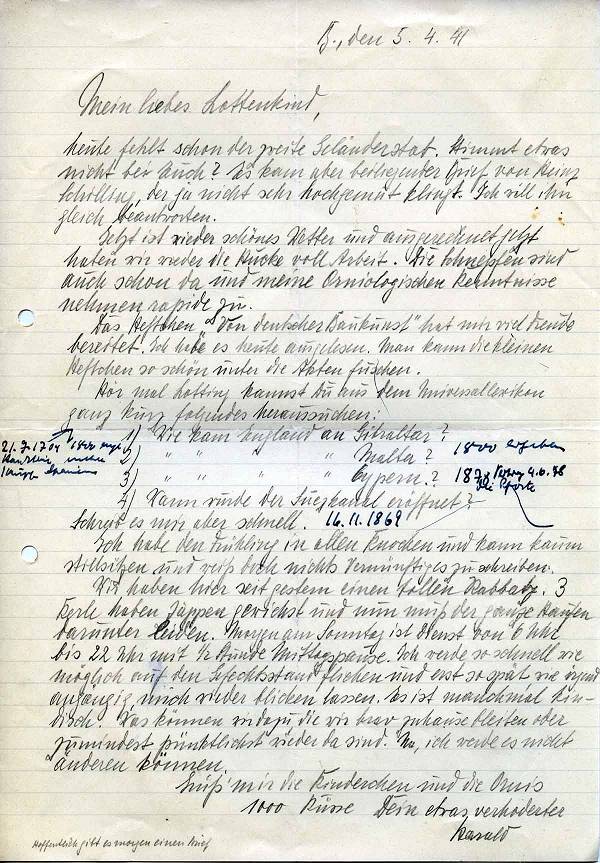 B., den 5. 4. 41
Mein liebes Lottenkind,
heute fehlt schon der zweite Geländerstab. Stimmt etwas
nicht bei Euch? Es kam aber beiliegender Brief von Heinz
Schilling, der ja nicht sehr hochgemut klingt. Ich will ihn
gleich beantworten.
Jetzt ist wieder schönes Wetter und ausgerechnet jetzt
haben wir wieder die Hucke voll Arbeit. Die Schnepfen sind
auch schon da und meine Orniologischen Kenntnisse
nehmen rapide zu.
Das Heftchen "Von deutscher Baukunst" hat mir viel Freude
bereitet. Ich habe es heute ausgelesen. Man kann die kleinen
Heftchen so schön unter die Akten fuschen.
Hör mal Lotting kannst Du aus dem Universallexikon
ganz kurz folgendes heraussuchen:
1) Wie kam England an Gibraltar?
21. 7. 1704
2) " " " " Malta? 1800
3) " " " " Cypern? 1878 Vertrag 4.6.78
die Pforte
4) Wann wurde der Suezkanal eröffnet?
Schreib es mir aber schnell. 16.11.1869
Ich habe den Frühling in allen Knochen und kann kaum
stillsitzen und weiß doch nichts Vernünftiges zu schreiben.
Wir haben hier seit gestern einen tollen Rabbatz. 3
Kerle haben Zappen gewichst und nun muß der ganze Haufen
darunter leiden. Morgen am Sonntag ist Dienst von 6 Uhr
bis 22 Uhr mit 1/2 Stunde Mittagspause. Ich werde so schnell wie
möglich auf den Gefechtsstand fliehen und erst so spät wie irgend
angängig mich wieder blicken lassen. Es ist manchmal kin-
disch. Was können wir dazu die wir brav zuhause bleiben oder
zumindest pünktlichst wieder da sind. Na, ich werde es nicht
änderen können.
Grüß mir die Kinderchen und die Omis
1000 Küsse Dein etwas verkoderter
Harald
Hoffentlich gibt es morgen einen Brief